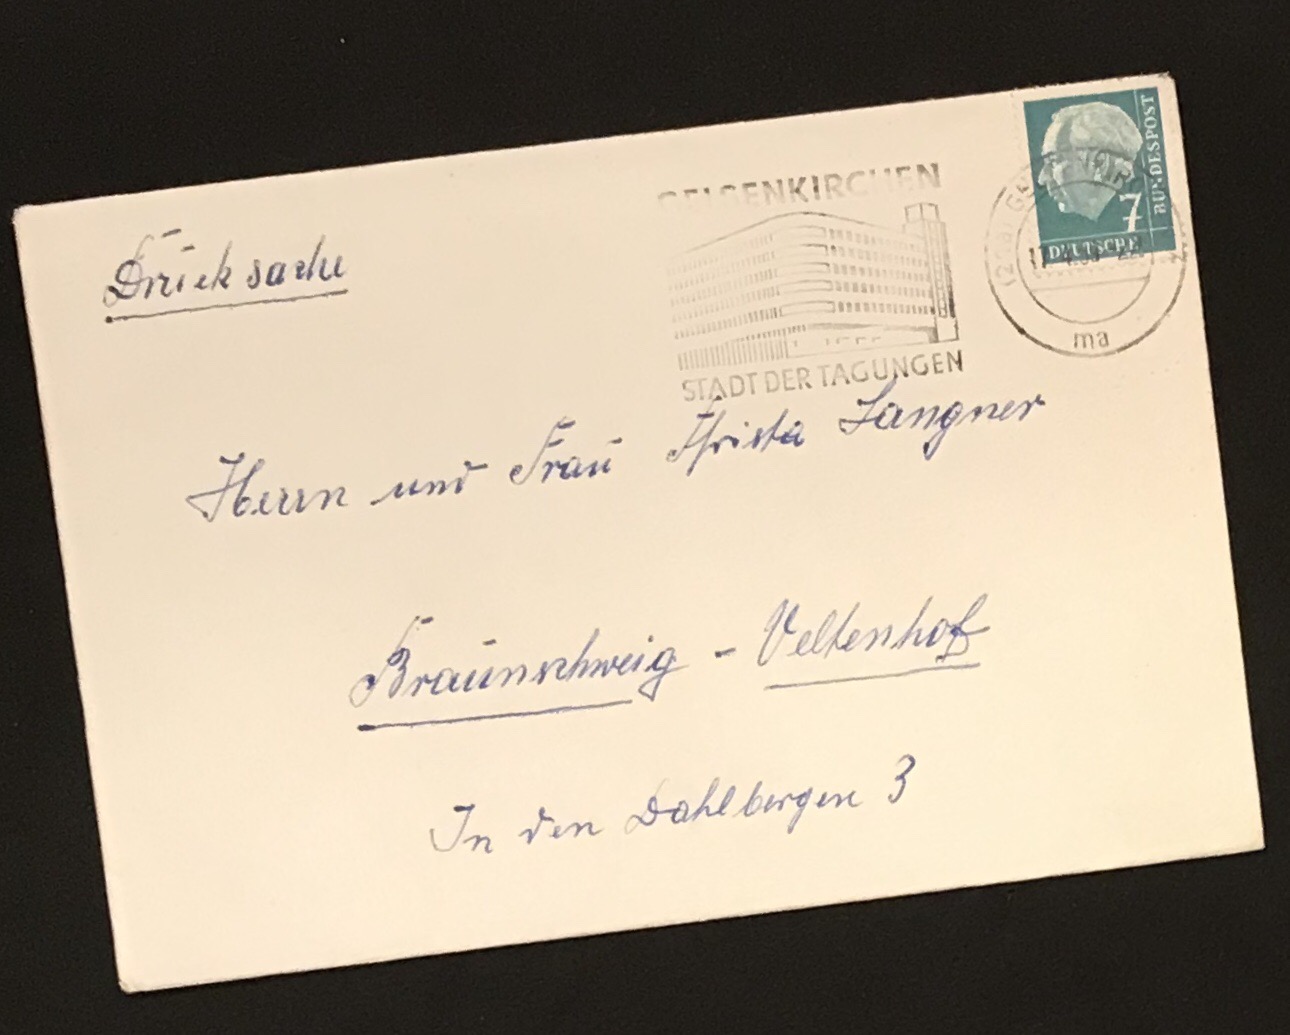 Drucksache
GELSENKIRCHEN
STADT DER TAGUNGEN
7
DEUTSCHE
BUNDESPOST
ma
Herrn und Frau Christa Langner
Braunschweig - Veltenhof
In den Dahlbergen 3